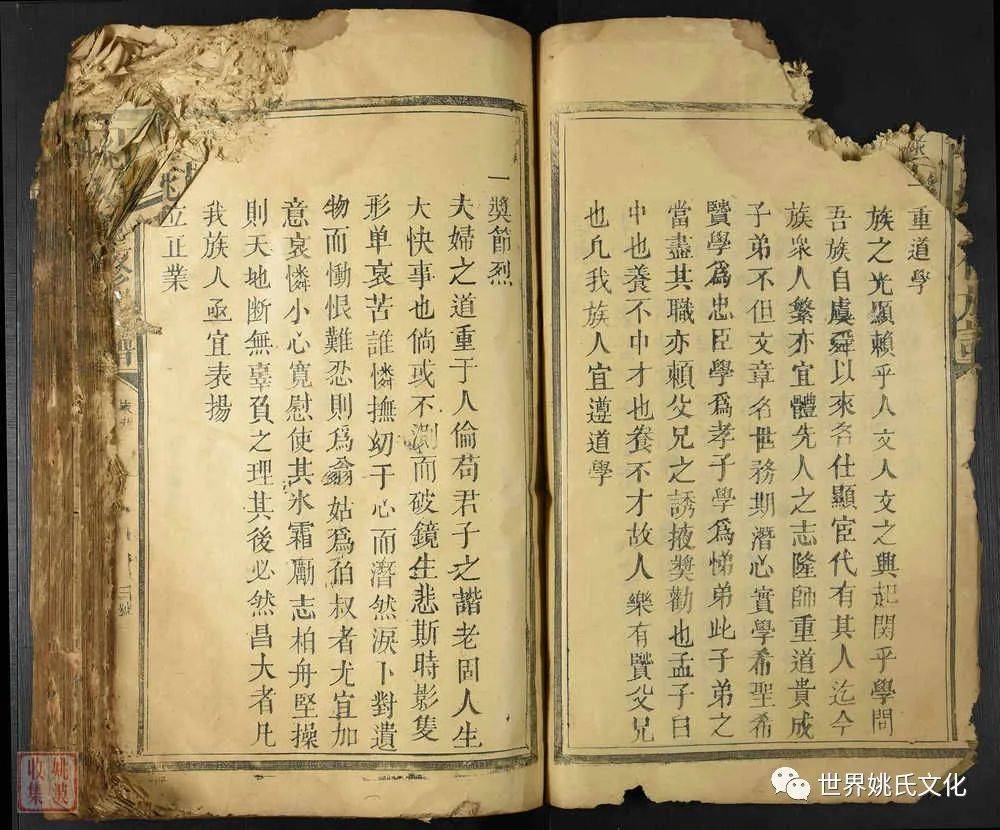 一重道學
族之光顯賴乎人文人文之興起関乎學問
吾族自虞舜以來名仕顯宦代有其人迄今
族衆人繁亦宜體先人之志隆師重道貴成
子弟不但文章名世務期潛心實學希聖希
賢學爲忠臣學爲孝子學爲悌弟此子弟之
當盡其職亦賴父兄之誘掖奬勸也孟子曰
中也養不中才也養不才故人樂有賢父兄
也凢我族人宜遵道學
一獎節烈
夫婦之道重于人倫苟君子之諧老固人生
大快事也倘或不測而破鏡生悲斯時影隻
形单哀苦誰憐撫幼于心而潛然淚卜對遺
物而慟恨難忍則爲翁姑爲伯叔者尤宜加
意哀憐小心寛慰使其氷霜勵志柏舟堅操
則天地断無辜負之理其後必然昌大者凢
我族人亟宜表揚
立正業
世界姚氏文化
姚波
收集